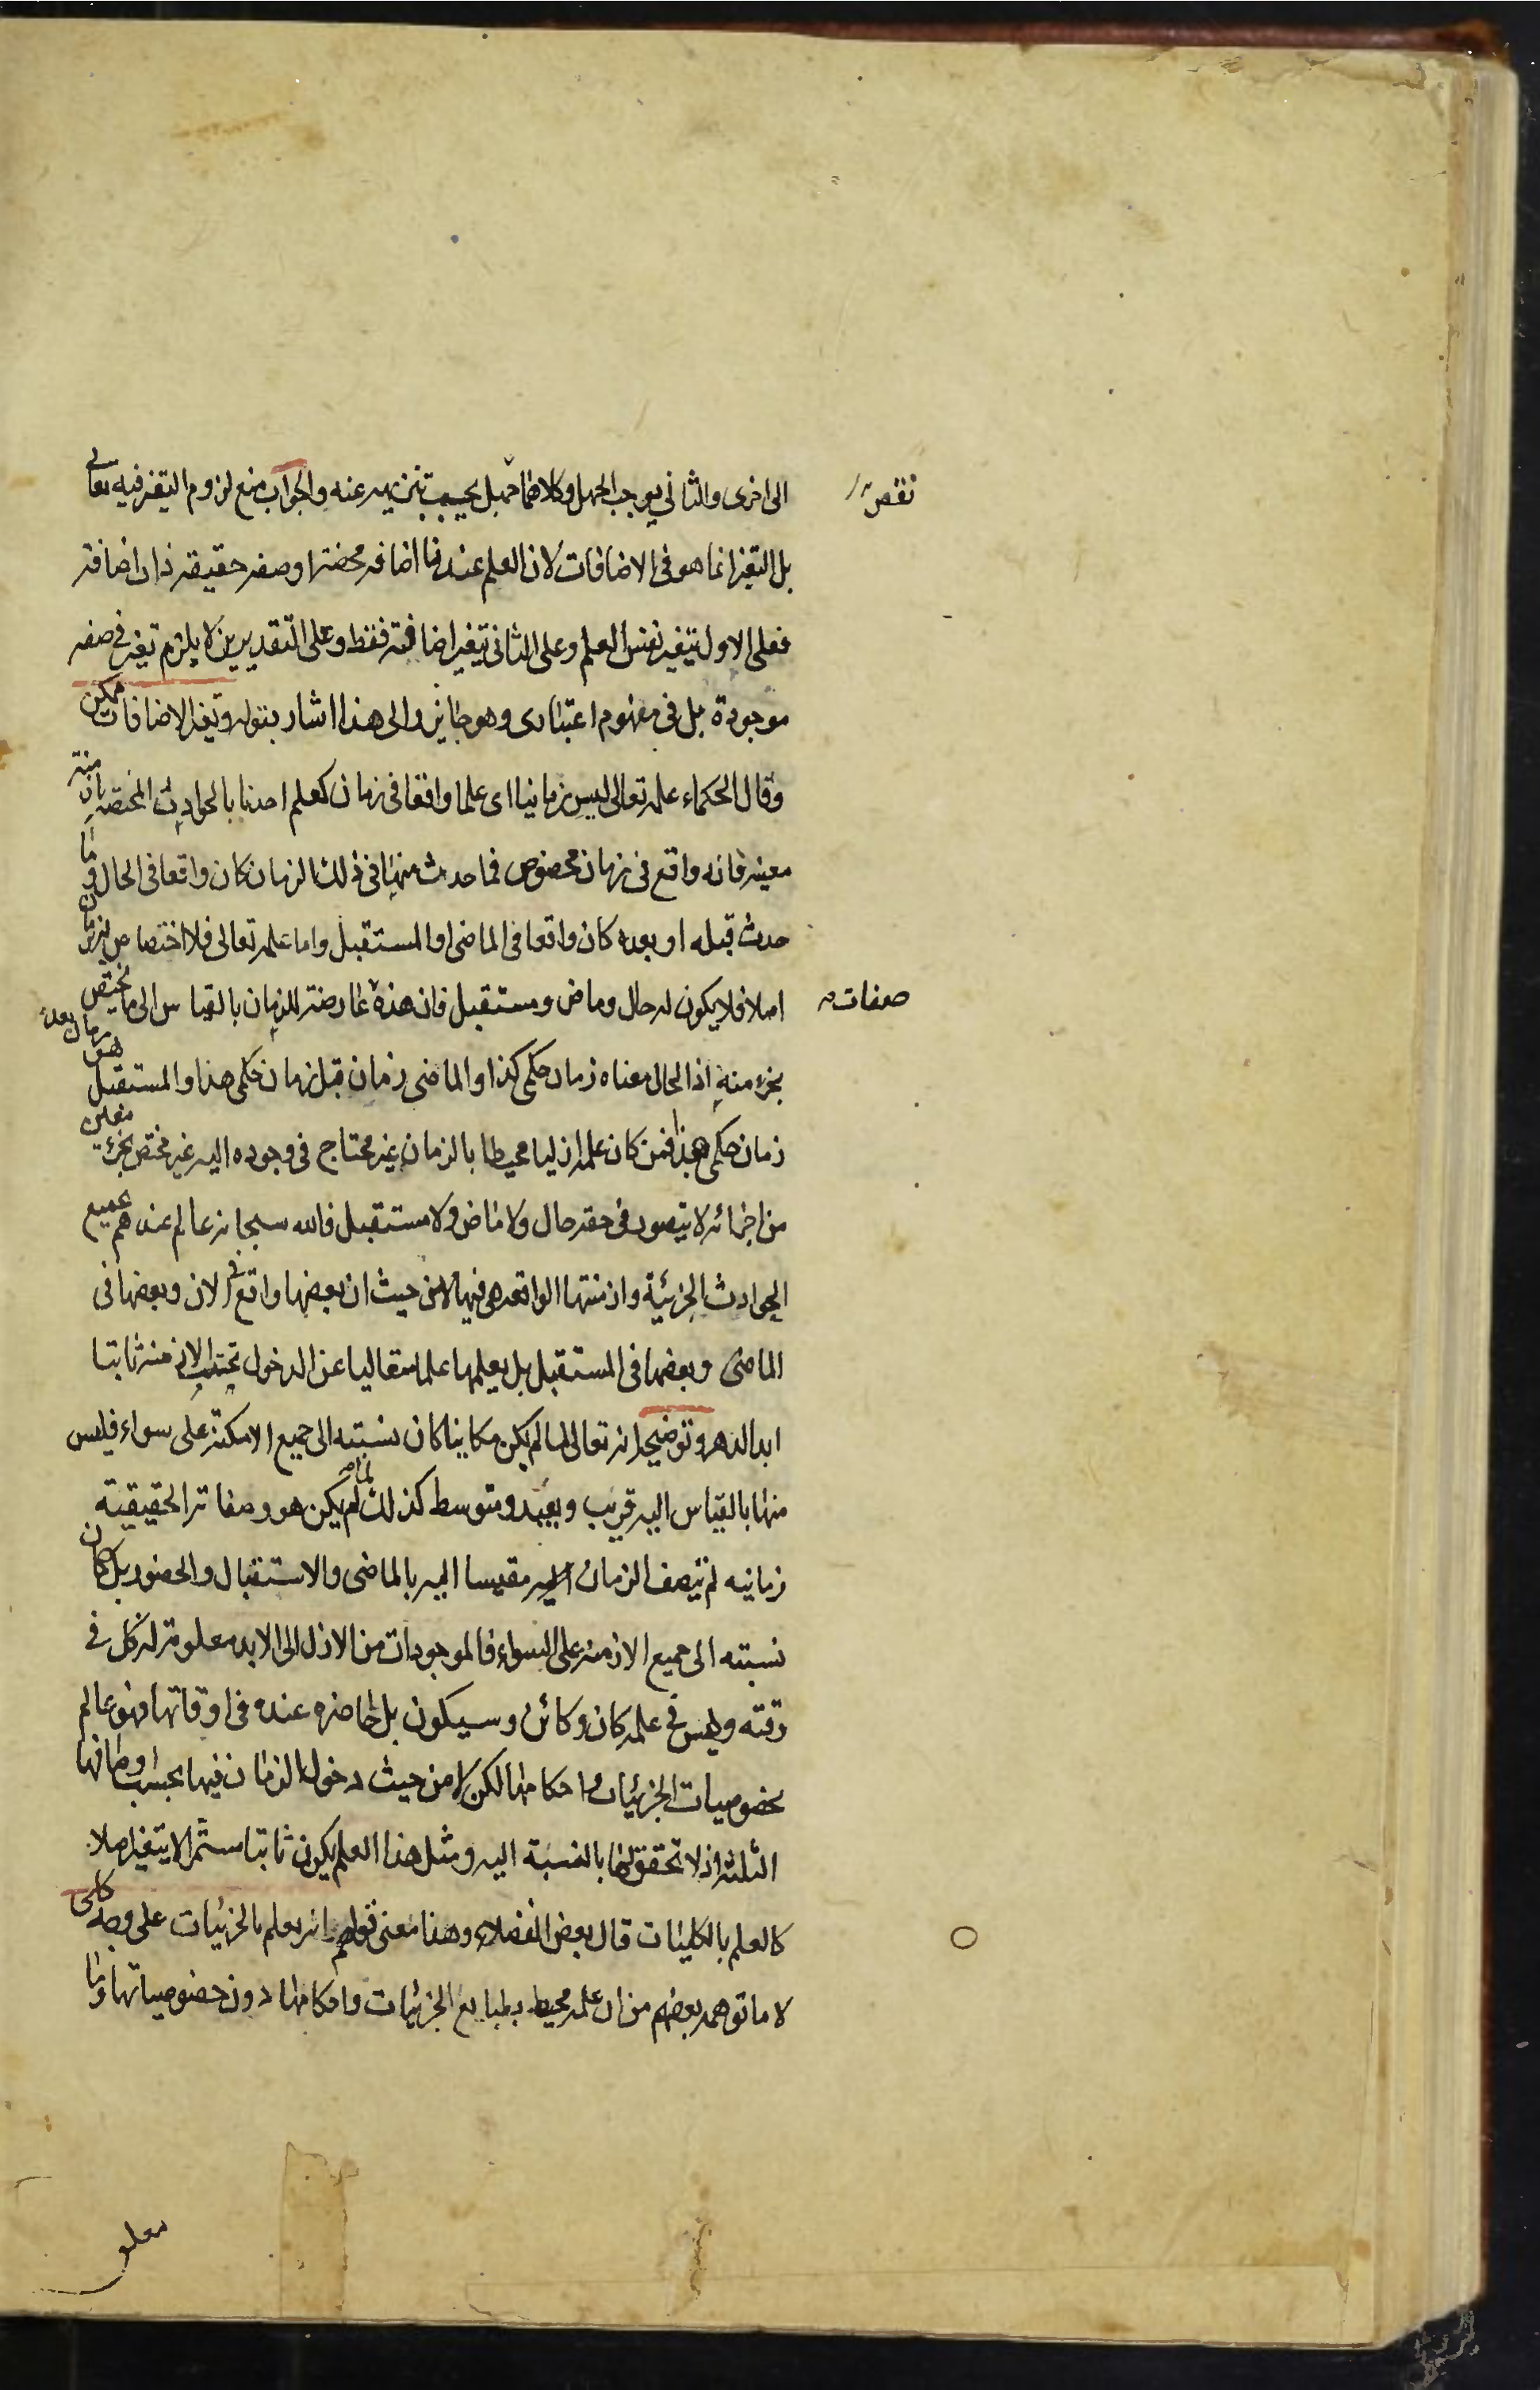 الى اخرى والثاني يوجب الجهل وكلاهما نقص يجب تنزيهه عنه والجواب منع لزوم التغير فيه تعالى
نقص
بل التغير انما هو في الاضافات لان العلم عندنا اضافة محضة او صفة حقيقة ذات اضافة
فعلى الاول يتغير نفس العلم وعلى الثاني يتغير اضافته فقط وعلى التقديرين لا يلزم تغير في صفة
موجودة بل في مفهوم اعتبارى وهو جايز والى هذا اشار بقوله وتغير الاضافات ممكن
وقال الحكماء علمه تعالى ليس زمانيا اى علما واقعا في زمان كعلم احدنا بالحوادث المختصة بازمنة
معينة فانه واقع في زمان مخصوص فما حدث منها في ذلك الزمان كان واقعا في الحال وما
حدث قبله او بعده كان واقعا في الماضى او المستقبل واما علمه تعالى فلا اختصاص له بزمان
اصلا فلا يكون له حال وماض ومستقبل فان هذه عارضة للزمان بالقياس الى ما يختص
صفات
بجزء منه اذ الحال معناه زمان حكمى كذا والماضى زمان قبل زمان حكمى هذا والمستقبل هو زمان بعد
زمان حكمى هذا فمن كان علمه ازليا محيطا بالزمان غير محتاج في وجوده اليه غير مختص بجزء معين
من اجزائه لا يتصور في حقه حال ولا ماض ولا مستقبل فالله سبحانه عالم عندهم بجميع
الحوادث الجزئية وازمنتها الواقعة هى فيها لا من حيث ان بعضها واقع في الان وبعضها في
الماضى وبعضها في المستقبل بل يعلمها علما متعاليا عن الدخول تحت الازمنة ثابتا
ابد الدهر وتوضيحه انه تعالى لما لم يكن مكانيا كان نسبته الى جميع الامكنة على سواء فليس
منها بالقياس اليه قريب وبعيد ومتوسط كذلك لما لم يكن هو وصفاته الحقيقية
زمانية لم يتصف الزمان مقيسا اليه بالماضى والاستقبال والحضور بل كان
نسبته الى جميع الازمنة على السواء فالموجودات من الازل الى الابد معلومة له كل في
وقته وليس في علمه كان وكائن وسيكون بل حاضرة عنده في اوقاتها فهو عالم
بخصوصيات الجزئيات واحكامها لكن لا من حيث دخول الزمان فيها بحسب اوصافها
الثلثة اذ لا تحقق لها بالنسبة اليه ومثل هذا العلم يكون ثابتا مستمرا لا يتغير اصلا
كالعلم بالكليات قال بعض الفضلاء وهذا معنى قولهم انه يعلم بالجزئيات على وجه كلى
لا ما توهمه بعضهم من ان علمه محيط بطبايع الجزئيات واحكامها دون خصوصياتها وما
معلو